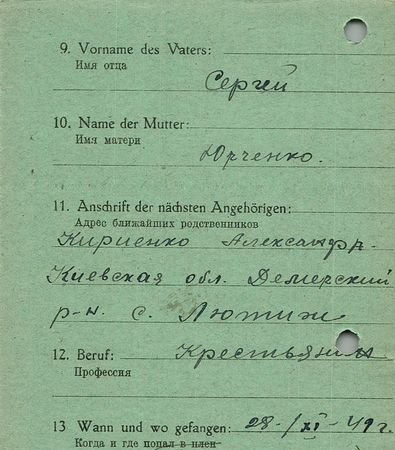 9. Vorname des Vaters:
Имя отца
Сергей
10. Name der Mutter:
Имя матери
Юрченко.
11. Anschrift der nächsten Angehörigen:
Адрес ближайших родственников
Кириенко Александр.
Киевская обл. Демерский
р-н. с. Лютиж
12. Beruf: Крестьянин
Профессия
13 Wann und wo gefangen: 28-/XI-49г.
Когда и где попал в плен